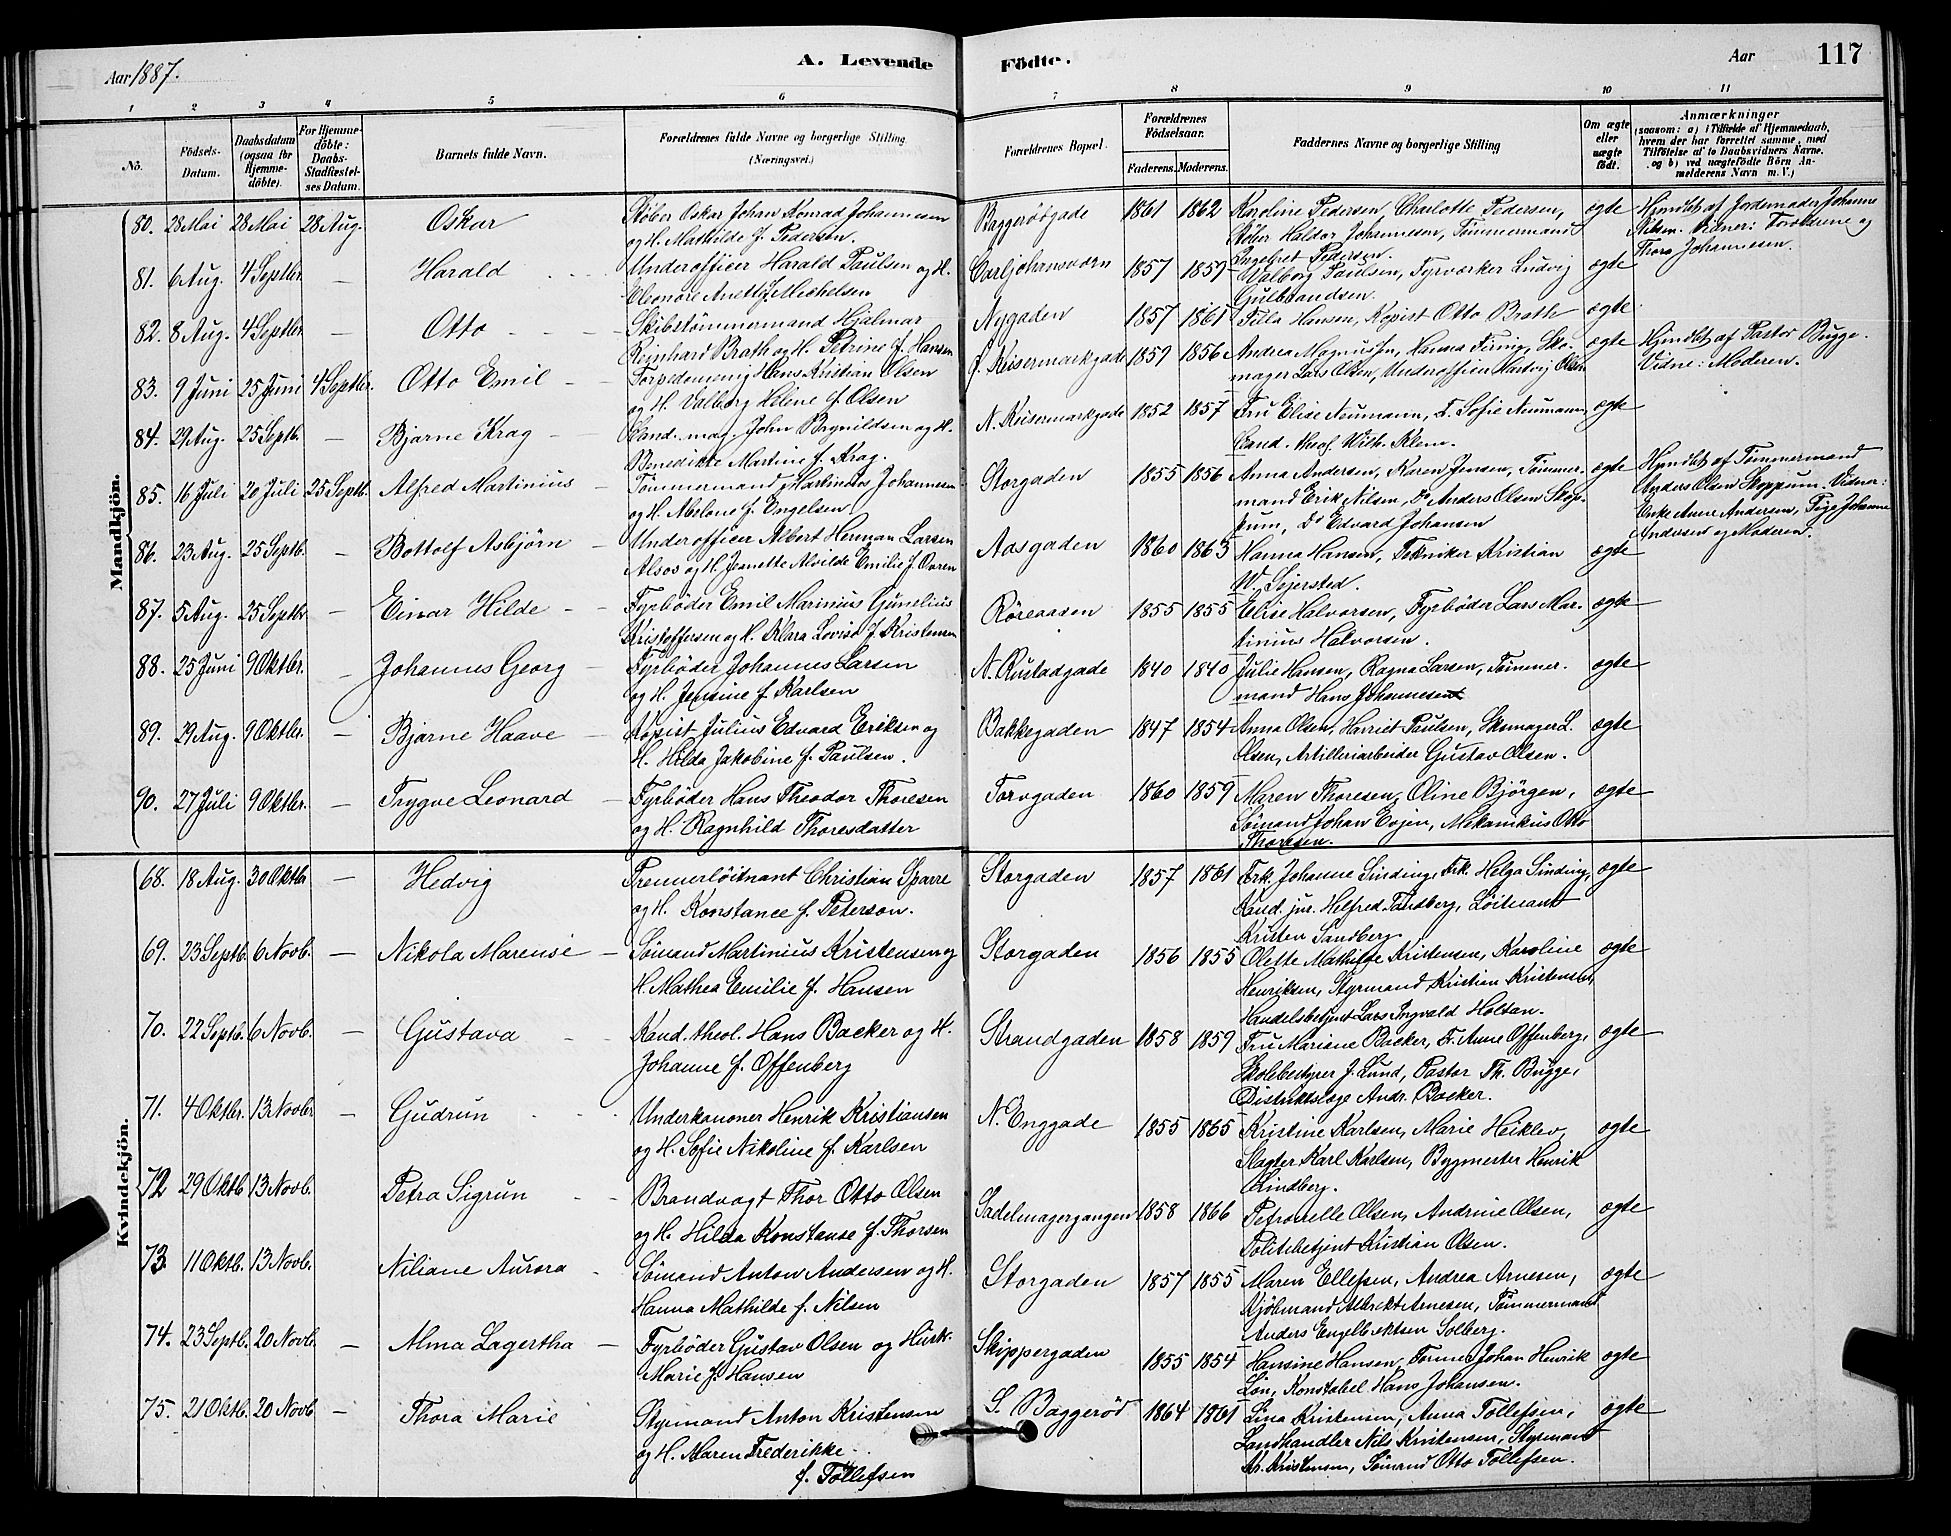 Aar 1887. A. Levende
1 2 3 4 5 6
No. Födsels-Datum. Daabsdatum (ogsaa for Hjemmedöbte). For Hjemmedöbte: Daabs-Stadfæstelses Datum. Barnets fulde Navn. Forældrenes fulde Navne og borgerlige Stilling (Næringsvei.)
Mandkjön.
80. 28 Mai 28 Mai 28 Aug. Oskar Støber Oskar Johan Konrad Johannesen
og H. Mathilde f. Pedersen.
81. 6 Aug. 4 Septbr. — Harald Underofficer Harald Paulsen og H.
Eleonore Anette f. Michelsen
82. 8 Aug. 4 Septbr. — Otto Skibstømmermand Hjalmar
Reinhard Brath og H. Petrine f. Hansen
83. 9 Juni 25 Juni 4 Septbr. Otto Emil Torpedomenig Hans Kristian Olsen
og H. Valborg Helene f. Olsen
84. 29 Aug. 25 Septb. — Bjarne Krag Cand. mag. John Brynildsen og H.
Benedikte Martine f. Krag.
85. 16 Juli 20 Juli 25 Septb. Alfred Martinius Tömmermand Martinius Johannesen
og H. Abelone f. Engelsen
86. 23 Aug. 25 Septb. — Bottolf Asbjörn Underofficer Albert Herman Larsen
Alsos og H. Jeanette Alvilde Emilie f. Ovren
87. 5 Aug. 25 Septbr — Einar Hilde Fyrbøder Emil Marinius Gunelius
Kristoffersen og H. Klara Lovise f. Kristensen
88. 25 Juni 9 Oktbr. — Johannes Georg Fyrbøder Johannes Larsen
og H. Jensine f. Karlsen
89. 29 Aug. 9 Oktbr. — Bjarne Haave Kopist Julius Edvard Eriksen og
H. Hilda Jakobine f. Paulsen.
90. 27 Juli 9 Oktbr. — Trygve Leonard Fyrbøder Hans Theodor Thoresen
og H. Ragnhild Thoresdatter
Kvindekjön.
68. 18 Aug. 30 Oktbr — Hedvig Premierløitnant Christian Sparre
og H. Konstance f. Peterson.
69. 23 Septb. 6 Novb. — Nikola Marense Sömand Martinius Kristensen og
H. Mathea Emilie f. Hansen
70. 22 Septb. 6 Novb. — Gustava Kand. theol. Hans Backer og H.
Johanne f. Offenberg
71. 4 Oktbr. 13 Novbr — Gudrun Underkanoner Henrik Kristiansen
og H. Sofie Nikoline f. Karlsen
72 29 Oktb. 13 Novb. Petra Sigrun Brandvagt Thor Otto Olsen
og H. Hilda Konstanse f. Thorsen
73. 11 Oktb. 13 Novb. Niliane Aurora Sömand Anton Andersen og H.
Hanna Mathilde f. Nilsen
74. 23 Septb. 20 Novb. — Alma Lagertha Fyrbøder Gustav Olsen og Hustr.
Marie f. Hansen
75. 21 Oktb. 20 Novb. — Thora Marie Styrmand Anton Kristensen
og H. Maren Frederikke
f. Tollefsen
Födte. Aar 117
7 8 9 10 11
Forældrenes Bopæl. Forældrenes Födselsaar. Faderens. Moderens. Faddernes Navne og borgerlige Stilling Om ægte eller uægte födt. Anmærkninger (saasom: a) i Tilfælde af Hjemmedaab, hvem der har forrettet samme, med Tilföielse af to Daabsvidners Navne, og b) ved uægtefödte Börn Anmelderens Navn m. V.)
Baggerödgade 1861 1862 Karoline Pedersen, Charlotte Pedersen, ægte Hjmdbt af Jordemoder Johanne
Støber Haldor Johannesen, Tømmermand Nilsen. Vidner: Forældrene og
Ingebret Pedersen. Thora Johannesen.
Carljohansværn 1857 1859 Valborg Paulsen, Fyrværker Ludvig ægte
Gulbrandsen.
Nygaden 1857 1861 Tilla Hansen, Kopist Otto Brath ægte
f. Keisermarkgade 1859 1856 Andrea Magnussen, Hanna Firing, Sko- ægte Hjmdbt af Pastor Bugge.
mager Lars Olsen, Underofficer Hartvig Olsen Vidne: Moderen.
N. Keisermarkgade 1852 1857 Fru Elise Aumann, F. Sofie Aumann, ægte
Cand. theol. Wilh. Klem.
Storgaden 1855 1856 Anna Andersen, Karen Jensen, Tömmer- ægte Hjmdbt af Tømmermand
mand Erik Nilsen, Do Anders Olsen Skop- Anders Olsen Skoppum. Vidner:
pum, Do Edvard Johansen Enke Anne Andersen, Pige Johanne
Andersen og Moderen.
Aasgaden 1860 1863 Hanna Hansen, Tekniker Kristian ægte
W. Sejersted.
Röreaasen 1855 1855 Elise Halvorsen, Fyrbøder Lars Mar- ægte
tinius Halvorsen.
N. Rustadgade 1840 1840 Julie Hansen, Ragna Larsen, Tømmer- ægte
mand Hans Johannesen
Bakkegaden 1847 1854 Anna Olsen, Harriet Paulsen, Skomager L. ægte
Olsen, Artilleriarbeider Gustav Olsen.
Torvgaden 1860 1859 Maren Thoresen, Oline Bjørgen, ægte
Sömand Johan Evjen, Mekanikus Otto
Thoresen.
Storgaden 1857 1861 Frk. Johanne Sinding, Frk. Helga Sinding, ægte
Kand. jur. Helfred Sandberg, Løitnant
Kristen Sandberg
Storgaden 1856 1855 Olette Mathilde Kristensen, Karoline ægte
Henriksen, Styrmand Kristian Kristensen,
Handelsbetjent Lars Ingvald Holtan.
Strandgaden 1858 1859 Fru Mariane Backer, F. Anne Offenberg, ægte
Skolebestyrer J. Lund, Pastor Th. Bugge,
Distriktslæge Andr. Backer.
N. Enggade 1855 1865 Kristine Karlsen, Marie Heiklev, ægte
Slagter Karl Karlsen, Bygmester Henrik
Lindberg.
Sadelmagergangen 1858 1866 Petronelle Olsen, Andrine Olsen, ægte
Politibetjent Kristian Olsen.
Storgaden 1857 1855 Maren Ellefsen, Andrea Arnesen, ægte
Kjöbmand Albrekt Arnesen, Tømmermand
Anders Engelbrektsen Solberg.
Skippergaden 1855 1854 Hansine Hansen, Former Johan Henrik ægte
Løn, Konstabel Hans Johansen.
S. Baggeröd 1864 1861 Lina Kristensen, Anna Tollefsen, ægte
Landhandler Nils Kristensen, Styrmand
Kr. Kristensen, Sömand Otto Tollefsen.